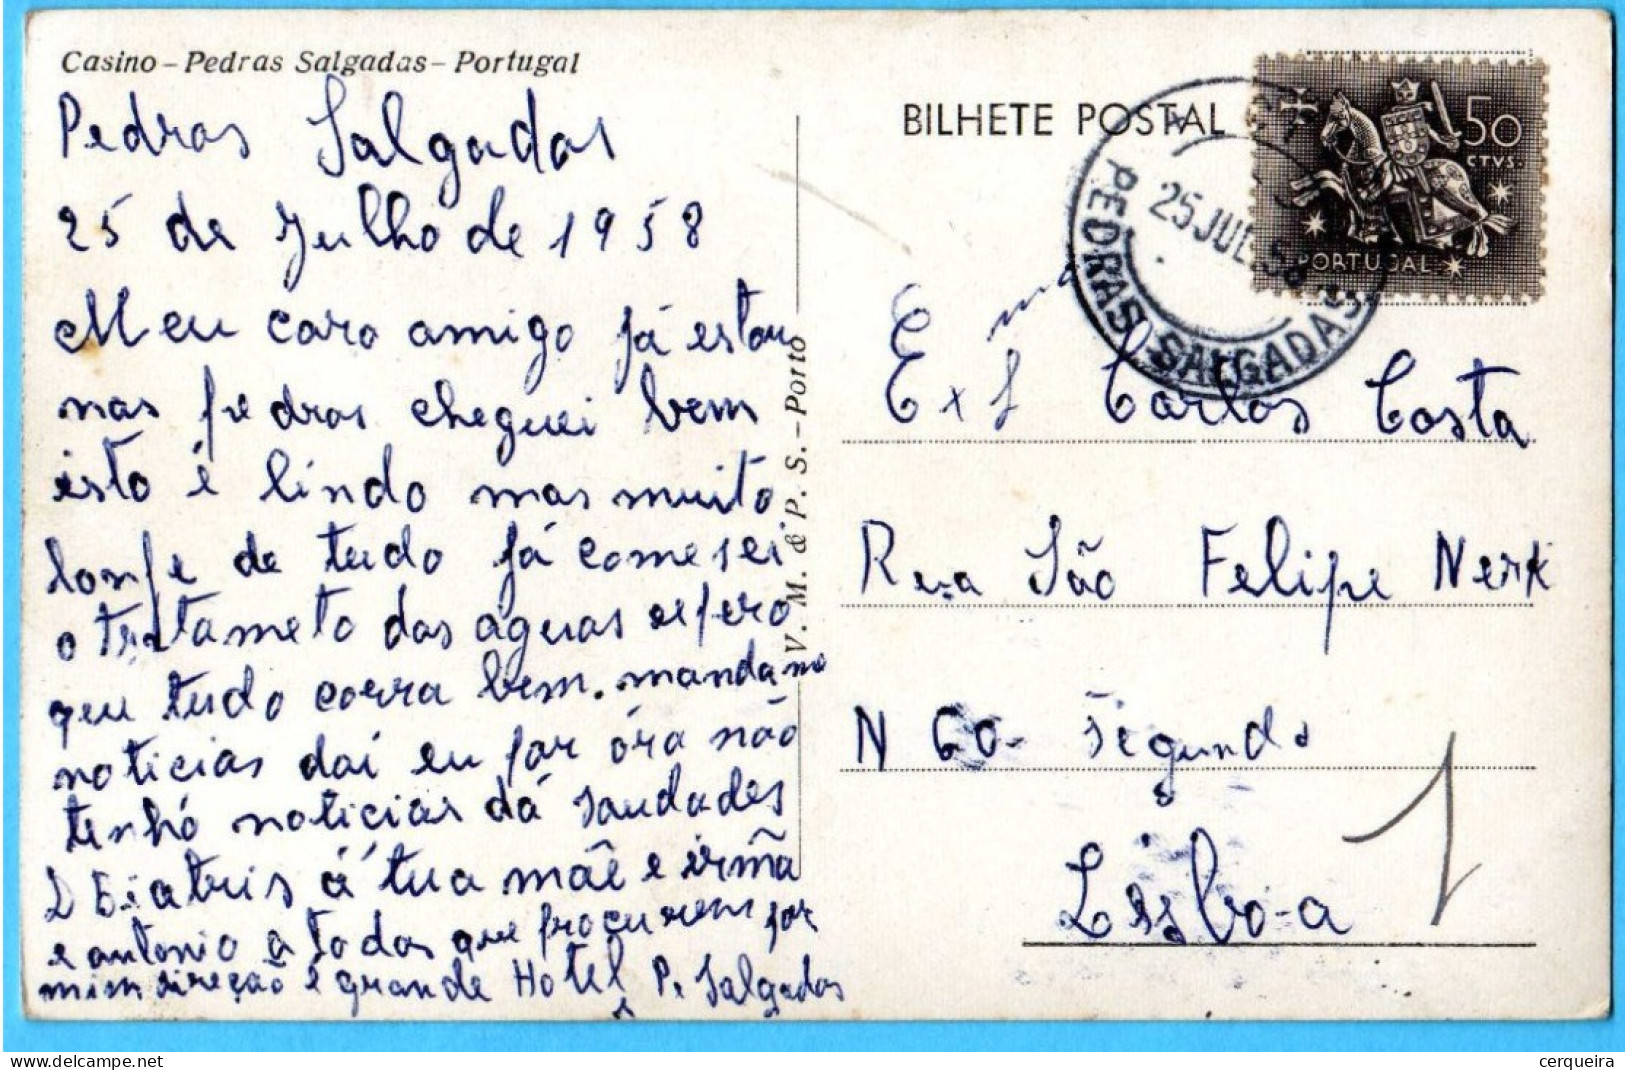 Casino – Pedras Salgadas – Portugal
Pedras Salgadas
25 de Julho de 1958
Meu caro amigo já estou
nas pedras cheguei bem
isto é lindo mas muito
longe de tudo já comesei
o tratameto das aguas espero
que tudo corra bem. manda me
noticias daí eu por óra não
tenhó noticias dá saudades
D Biatris á tua mãe e irmã
e antonio a todos que procurem por
mim direção é grande Hotel P. Salgadas
V. M. & P. S. – Porto
BILHETE POSTAL
PEDRAS SALGADAS
25 JUL 58
50
CTVS.
PORTUGAL
Ex Carlos Costa
Rua São Felipe Nerk
N 60 - Segundo
Lisbo-a
1
www.delcampe.net
cerqueira